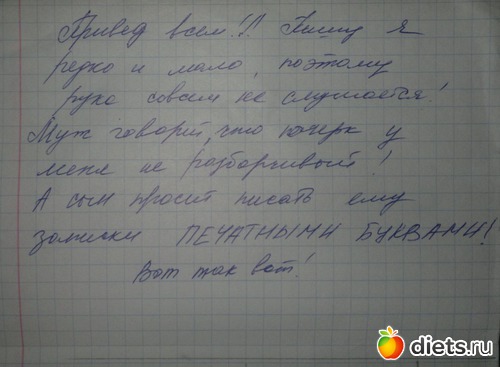 Привед всем!!! Пишу я
редко и мало, поэтому
рука совсем не слушается!
Муж говорит, что почерк у
меня не разборчивый!
А сын просит писать ему
записки ПЕЧАТНЫМИ БУКВАМИ!
Вот так вот!
diets.ru